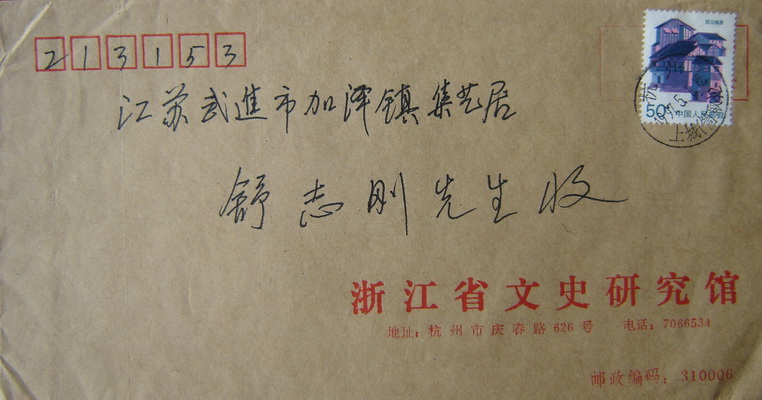 213153
江苏武進市加泽镇集艺居
舒志刚先生收
50分 中国人民邮政
上城
浙江省文史研究馆
地址：杭州市庆春路626号 电话：7066534
邮政编码：310006